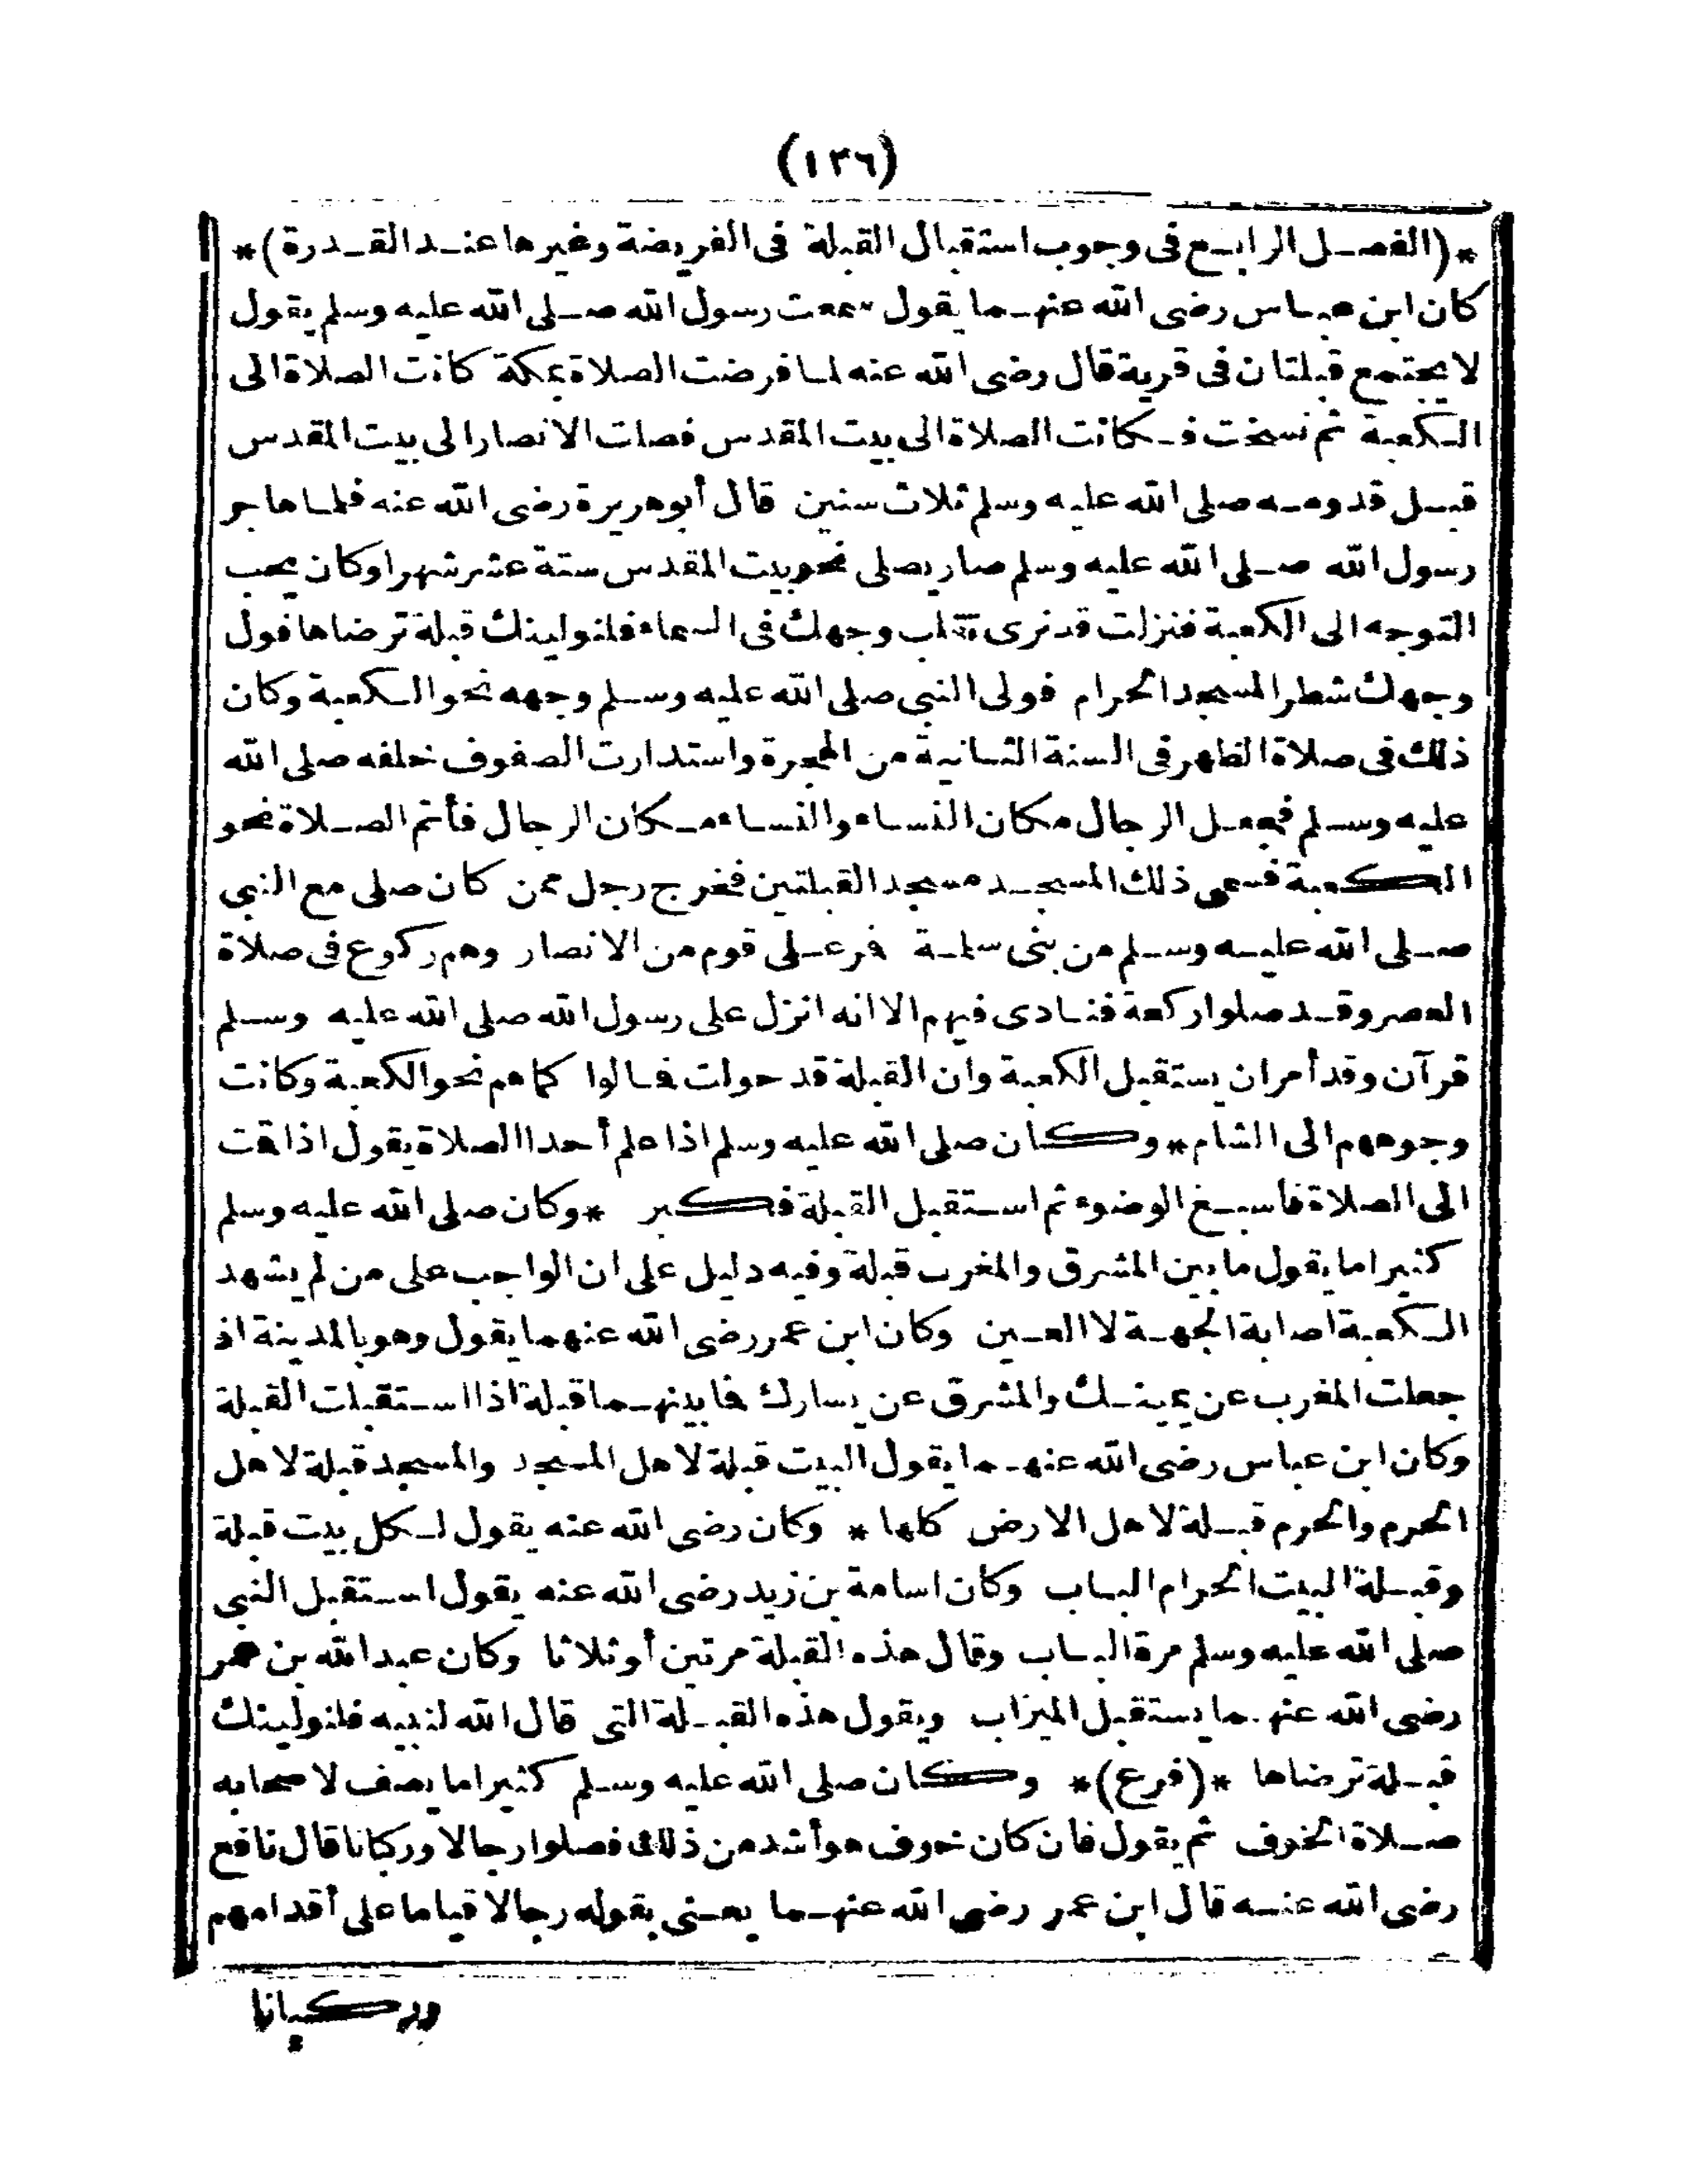 (١٣٦)
*(الفصل الرابع فى وجوب استقبال القبلة فى الفريضة وغيرها عند القدرة)*
كان ابن عباس رضى الله عنهما يقول سمعت رسول الله صلى الله عليه وسلم يقول
لا يجتمع قبلتان فى قرية قال رضى الله عنه لما فرضت الصلاة بمكة كانت الصلاة الى
الكعبة ثم نسخت فكانت الصلاة الى بيت المقدس فصلت الانصار الى بيت المقدس
قبل قدومه صلى الله عليه وسلم ثلاث سنين قال أبو هريرة رضى الله عنه فلما هاجر
رسول الله صلى الله عليه وسلم صار يصلى نحو بيت المقدس ستة عشر شهرا وكان يحب
التوجه الى الكعبة فنزلت قد نرى تقلب وجهك فى السماء فلنولينك قبلة ترضاها فول
وجهك شطر المسجد الحرام فولى النبى صلى الله عليه وسلم وجهه نحو الكعبة وكان
ذلك فى صلاة الظهر فى السنة الثانية من الهجرة واستدارت الصفوف خلفه صلى الله
عليه وسلم فجعل الرجال مكان النساء والنساء مكان الرجال فأتم الصلاة نحو
الكعبة فسمى ذلك المسجد مسجد القبلتين فخرج رجل ممن كان صلى مع النبى
صلى الله عليه وسلم من بنى سلمة فمر على قوم من الانصار وهم ركوع فى صلاة
العصر وقد صلوا ركعة فنادى فيهم الا انه انزل على رسول الله صلى الله عليه وسلم
قرآن وقد أمر ان يستقبل الكعبة وان القبلة قد حولت فمالوا كما هم نحو الكعبة وكانت
وجوههم الى الشام * وكان صلى الله عليه وسلم اذا علم أحدا الصلاة يقول اذا قمت
الى الصلاة فأسبغ الوضوء ثم استقبل القبلة فكبر * وكان صلى الله عليه وسلم
كثيرا ما يقول ما بين المشرق والمغرب قبلة وفيه دليل على ان الواجب على من لم يشهد
الكعبة اصابة الجهة لا العين وكان ابن عمر رضى الله عنهما يقول وهو بالمدينة اذ
جعلت المغرب عن يمينك والمشرق عن يسارك فما بينهما قبلة اذا استقبلت القبلة
وكان ابن عباس رضى الله عنهما يقول البيت قبلة لاهل المسجد والمسجد قبلة لاهل
الحرم والحرم قبلة لاهل الارض كلها * وكان رضى الله عنه يقول لكل بيت قبلة
وقبلة البيت الحرام الباب وكان اسامة بن زيد رضى الله عنه يقول استقبل النبى
صلى الله عليه وسلم مرة الباب وقال هذه القبلة مرتين أو ثلاثا وكان عبد الله بن عمر
رضى الله عنهما يستقبل الميزاب ويقول هذه القبلة التى قال الله لنبيه فلنولينك
قبلة ترضاها *(فرع)* وكان صلى الله عليه وسلم كثيرا ما يصف لاصحابه
صلاة الخوف ثم يقول فان كان خوف هو أشد من ذلك فصلوا رجالا وركبانا قال نافع
رضى الله عنه قال ابن عمر رضى الله عنهما يعنى بقوله رجالا قياما على أقدامهم
وركبانا